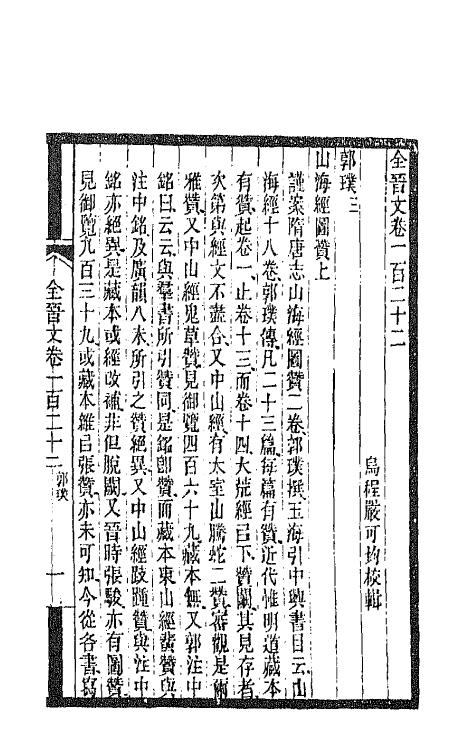 全晉文卷一百二十二
烏程嚴可均校輯
郭璞三
山海經圖贊上
謹案隋唐志山海經圖贊二卷郭璞撰玉海引中興書目云山
海經十八卷郭璞傳凡二十三篇每篇有贊近代惟明道藏本
有贊起卷一止卷十三而卷十四大荒經已下贊闕其見存者
次第與經文不盡合又中山經有太室山騰蛇二贊審觀是爾
雅贊又中山經鬼草贊見御覽四百六十九藏本無又郭注中
銘曰云云與羣書所引贊同是銘卽贊而藏本東山經蜚贊與
注中銘及廣韻八未所引之贊絕異又中山經跂踵贊與注中
銘亦絕異是藏本或經改補非但脫闕又晉時張駿亦有圖贊
見御覽九百三十九或藏本雜吕張贊亦未可知今從各書寫
全晉文卷一百二十二
郭璞
一